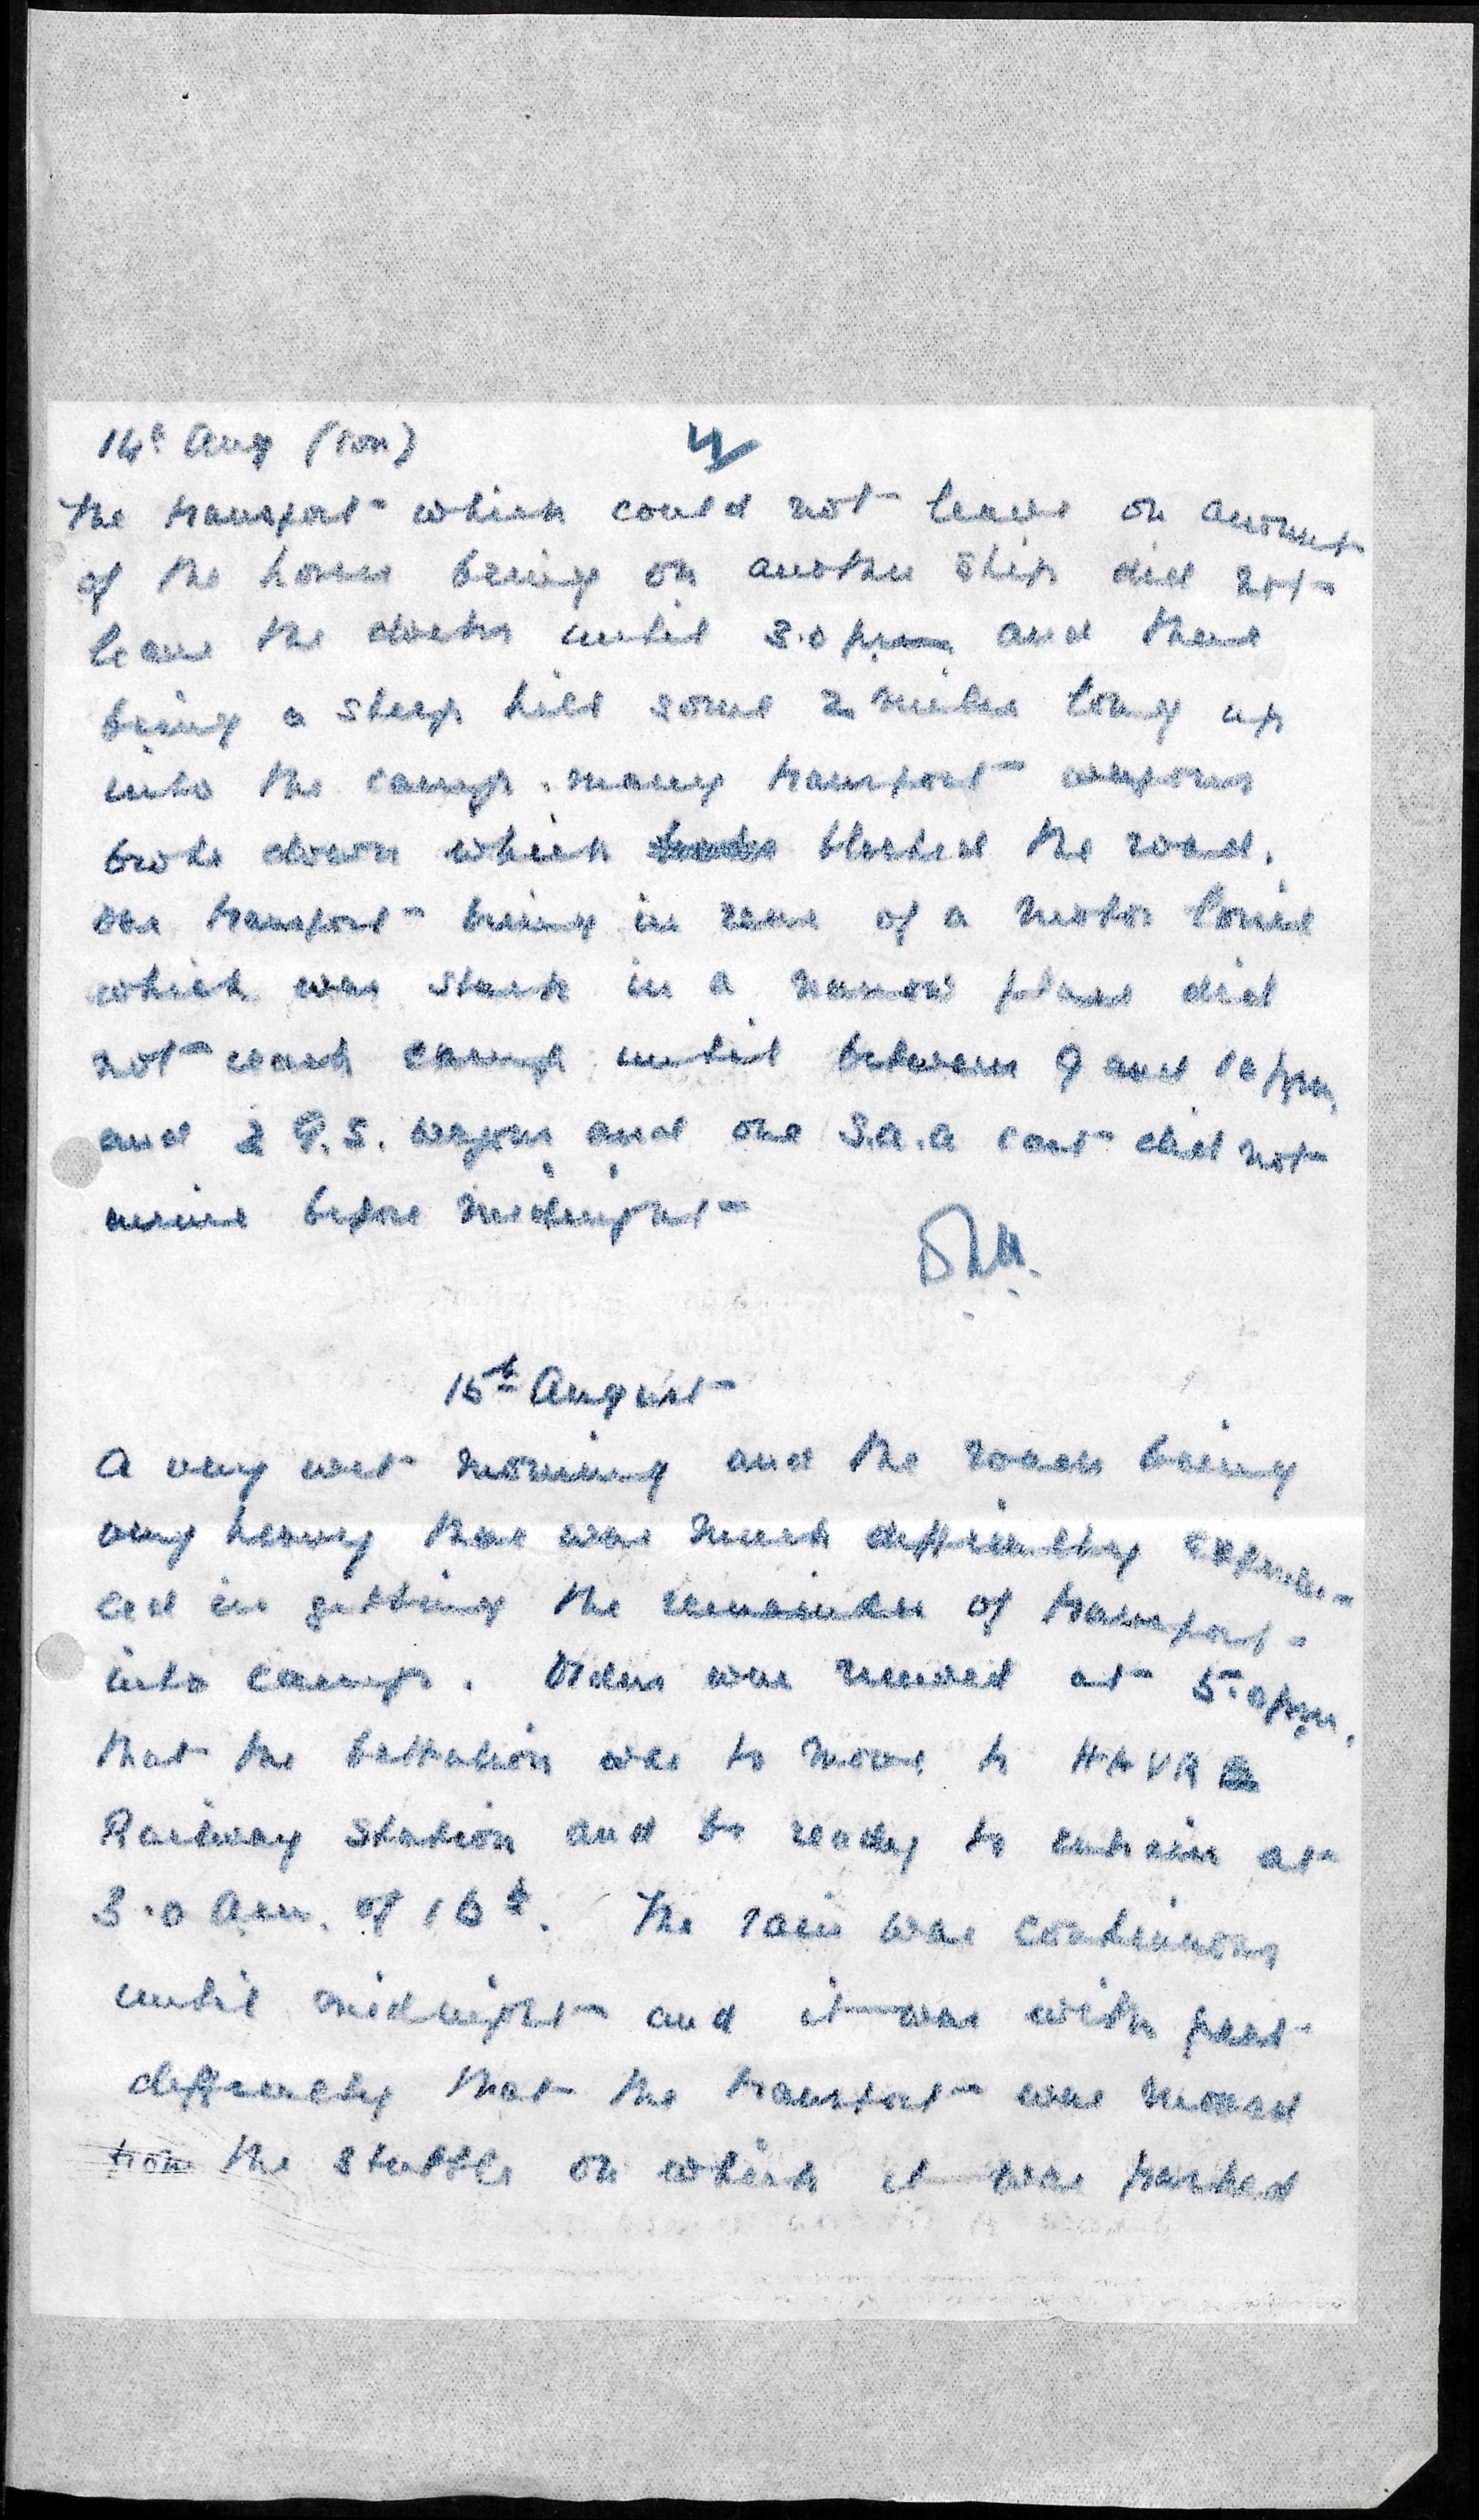 14th Aug (Con)
4
The transport which could not leave on account
of the horses being on another ship did not
leave the docks until 3.0 pm and there
being a steep hill some 2 miles long up
into the camp. many transport wagons
broke down which blocked the road.
Our transport being in rear of a motor lorrie
which was stuck in a narrow place did
not reach camp until between 9 and 10 pm,
and 2 G.S. wagons and one S.A.A cart did not
arrive before midnight
15th August
A very wet morning and the roads being
very heavy there was much difficulty experien-
ced in getting the remainder of transport
into camp. Orders were received at 5.0 pm.
that the battalion was to move to HAVRE
Railway Station and be ready to entrain at
3.0 am. of 16th. The rain was continuous
until midnight and it was with great
difficulty that the transport was moved
from the stubble on which it was parked